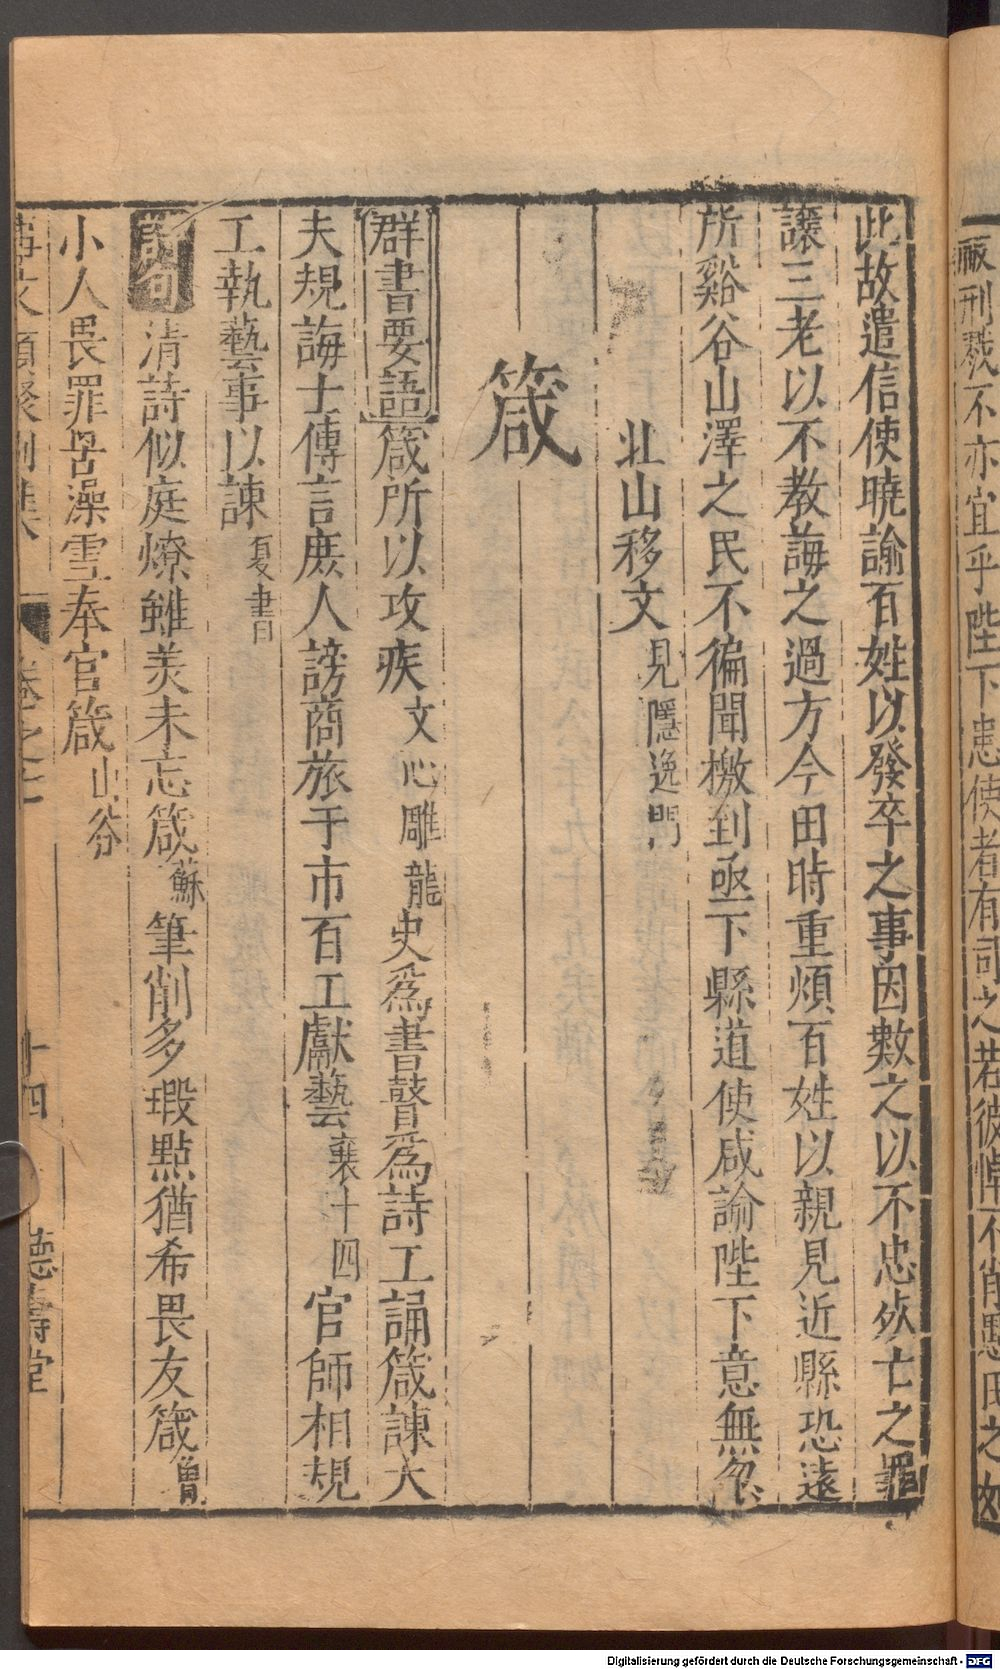 祿刑戮不亦宜乎陛下患使者有司之若彼悼不肖愚民之如
此故遣信使曉諭百姓以發卒之事因數之以不忠死亡之罪
讓三老以不教誨之過方今田時重煩百姓以親見近縣恐遠
所谿谷山澤之民不徧聞檄到亟下縣道使咸諭陛下意無忽
北山移文見隱逸門
箴
群書要語箴所以攻疾文心雕龍史爲書瞽爲詩工誦箴諫大
夫規誨士傳言庶人謗商旅于市百工獻藝襄十四官師相規
工執藝事以諫夏書
詩句清詩似庭燎雖羙未忘箴蘇筆削多瑕點猶希畏友箴曾
小人畏罪苦澡雪奉官箴山谷
卷之十 十四 德壽堂
Digitalisierung gefördert durch die Deutsche Forschungsgemeinschaft - DFG